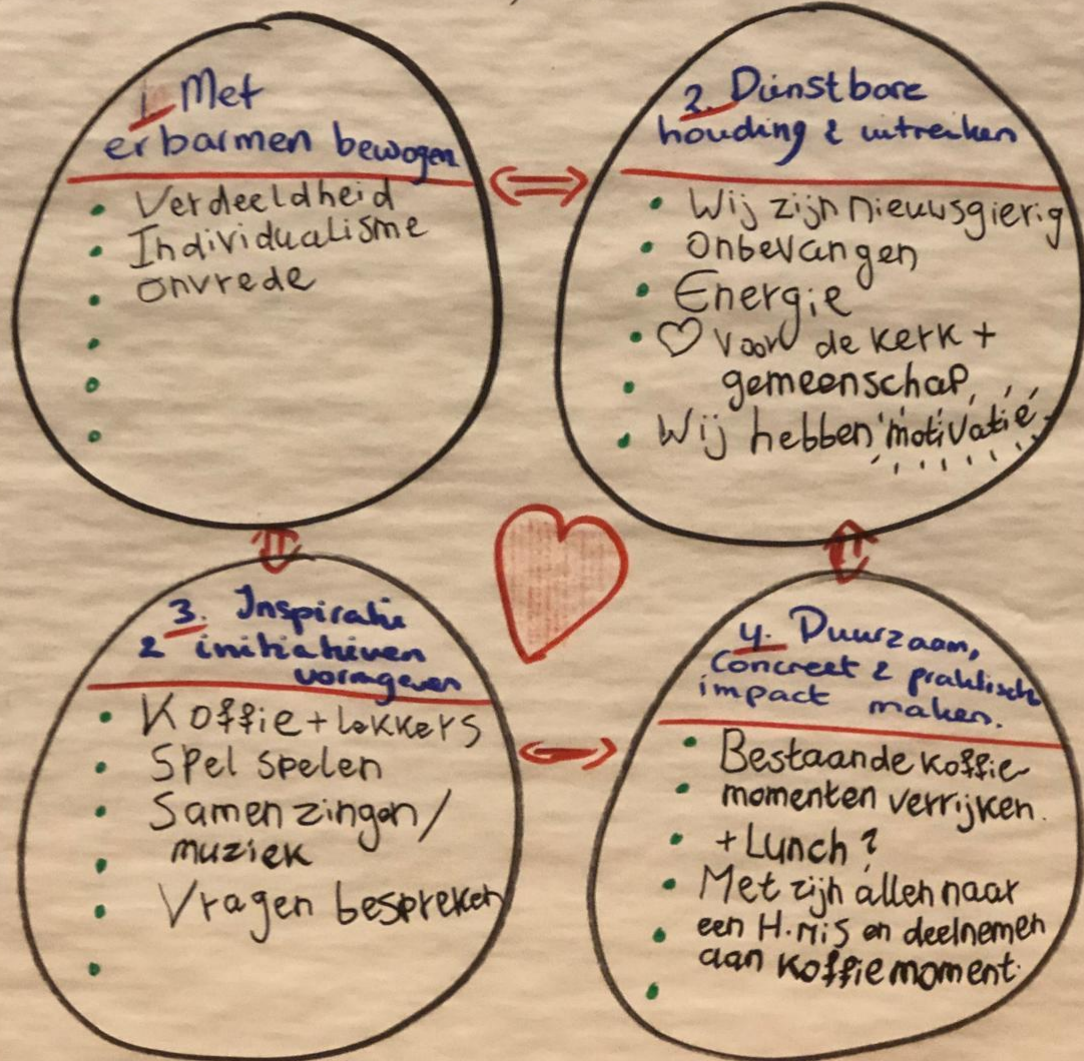 1. Met
erbarmen bewogen
Verdeeldheid
Individualisme
onvrede
2. Dienstbare
houding & uitreiken
Wij zijn nieuwsgierig
onbevangen
Energie
♡ voor de kerk +
gemeenschap
Wij hebben motivatie
3. Inspiratie
& initiatieven
vormgeven
Koffie + lekkers
Spel spelen
Samen zingen/
muziek
Vragen bespreken
4. Duurzaam,
Concreet & praktisch
impact maken.
Bestaande koffie-
momenten verrijken.
+ Lunch?
Met zijn allen naar
een H. Mis en deelnemen
aan koffiemoment.